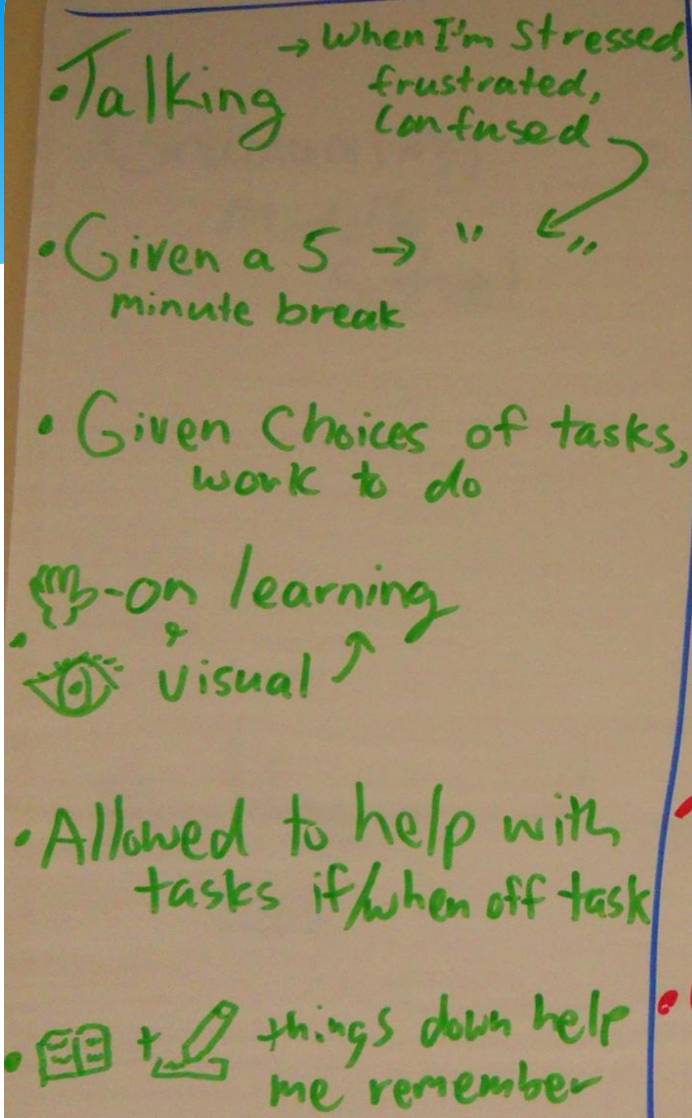 • Talking → When I'm Stressed,
frustrated,
Confused
• Given a 5 → " "
minute break
• Given Choices of tasks,
work to do
-on learning
• & visual
• Allowed to help with
tasks if/when off task
• + things down help
me remember